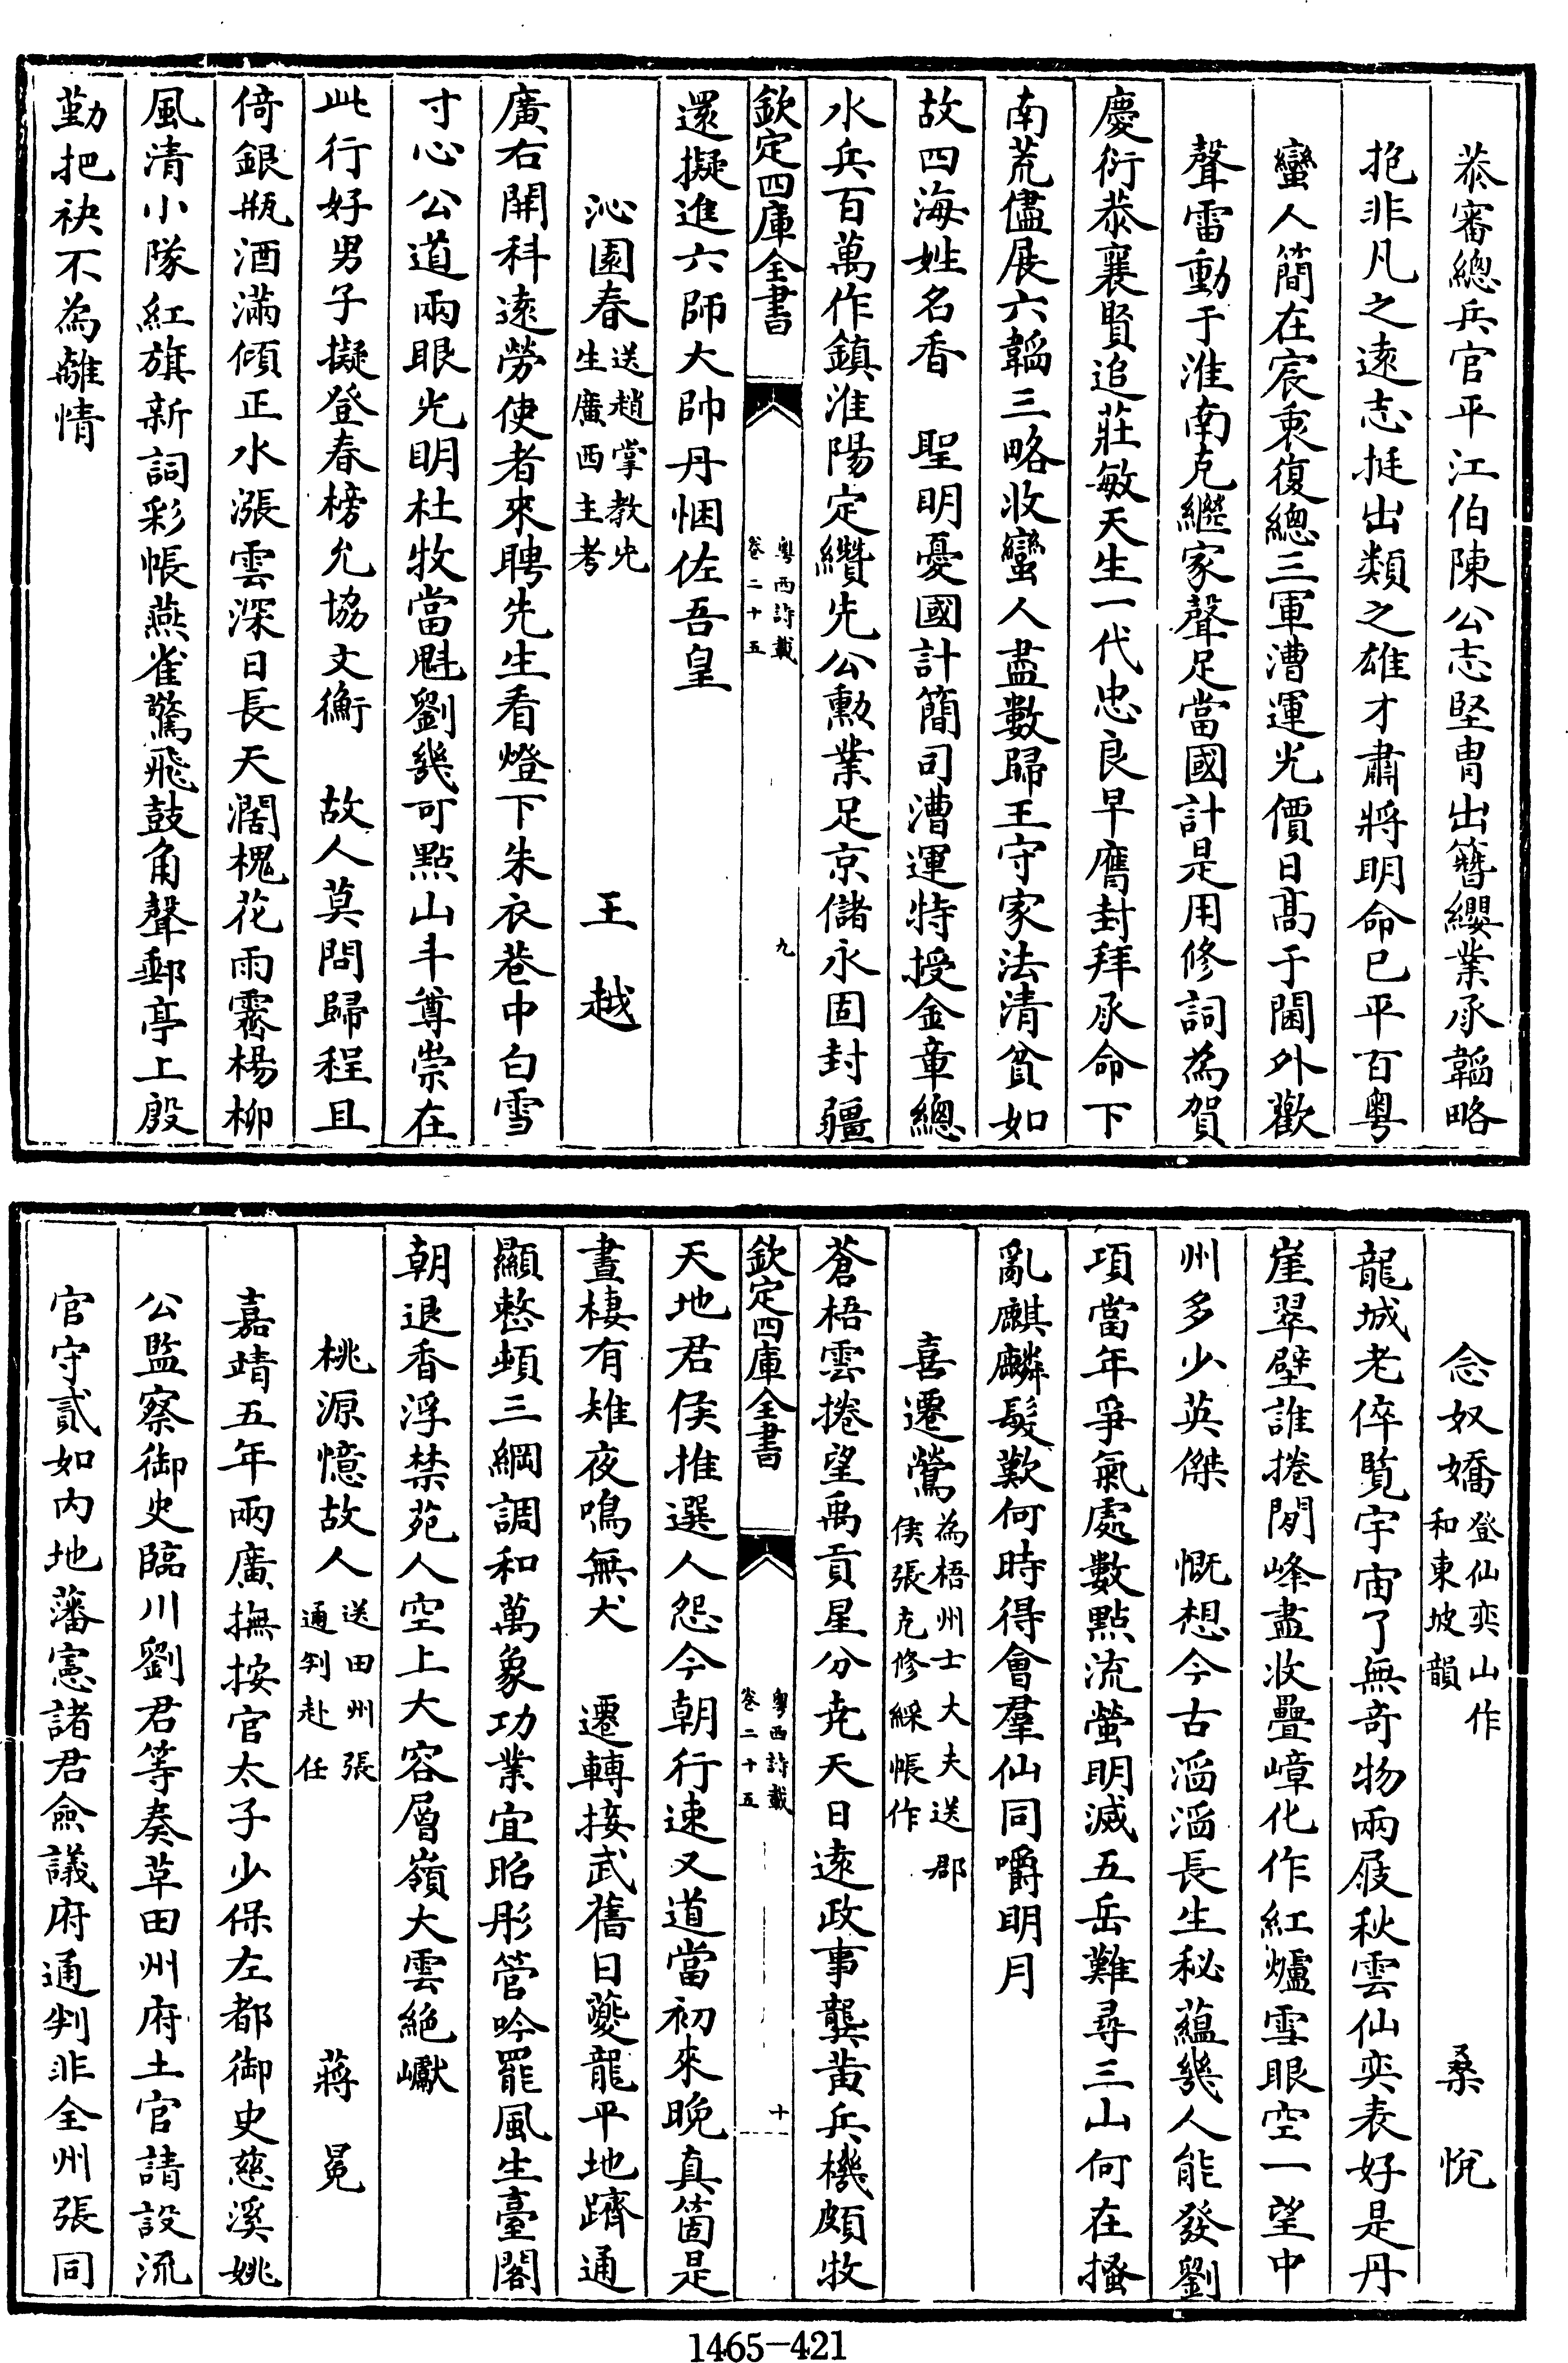 恭審總兵官平江伯陳公志堅冑出簪纓業承韜略
抱非凡之遠志挺出類之雄才肅將明命已平百粤
蠻人簡在宸衷復總三軍漕運光價日髙于閫外歡
聲雷動于淮南克繼家聲足當國計是用修詞為賀
慶衍恭襄賢追莊敏天生一代忠良早膺封拜承命下
南荒儘展六韜三略收蠻人盡數歸王守家法清貧如
故四海姓名香　聖明憂國計簡司漕運特授金章總
水兵百萬作鎮淮陽定纘先公勲業足京儲永固封疆
欽定四庫全書
粤西詩載
卷二十五
九
還擬進六師大帥丹悃佐吾皇
沁園春送趙掌教先
生廣西主考
王越
廣右開科遠勞使者來聘先生看燈下朱衣巷中白雪
寸心公道兩眼光明杜牧當魁劉幾可點山斗尊崇在
此行好男子擬登春榜允協文衡　故人莫問歸程且
倚銀瓶酒滿傾正水漲雲深日長天濶槐花雨霽楊柳
風清小隊紅旗新詞彩帳燕雀驚飛鼓角聲郵亭上殷
勤把袂不為離情
念奴嬌登仙奕山作
和東坡韻
桑悅
龍城老倅覽宇宙了無奇物兩屐秋雲仙奕表好是丹
崖翠壁誰捲閒峰盡收疊嶂化作紅爐雪眼空一望中
州多少英傑　慨想今古滔滔長生秘蘊幾人能發劉
項當年爭氣處數點流螢明滅五岳難尋三山何在搔
亂麒麟髮歎何時得會羣仙同嚼明月
喜遷鶯為梧州士大夫送郡
侯張克修綵帳作
蒼梧雲捲望禹貢星分尭天日遠政事龔黄兵機頗牧
欽定四庫全書
粤西詩載
卷二十五
十
天地君侯推選人怨今朝行速又道當初來晚真箇是
晝棲有雉夜鳴無犬　遷轉接武舊日夔龍平地躋通
顯整頓三綱調和萬象功業宜昭彤管吟罷風生臺閣
朝退香浮禁苑人空上大容層嶺大雲絶巘
桃源憶故人送田州張
通判赴任
蔣冕
嘉靖五年兩廣撫按官太子少保左都御史慈溪姚
公監察御史臨川劉君等奏草田州府土官請設流
官守貳如内地藩憲諸君僉議府通判非全州張同
1465-421